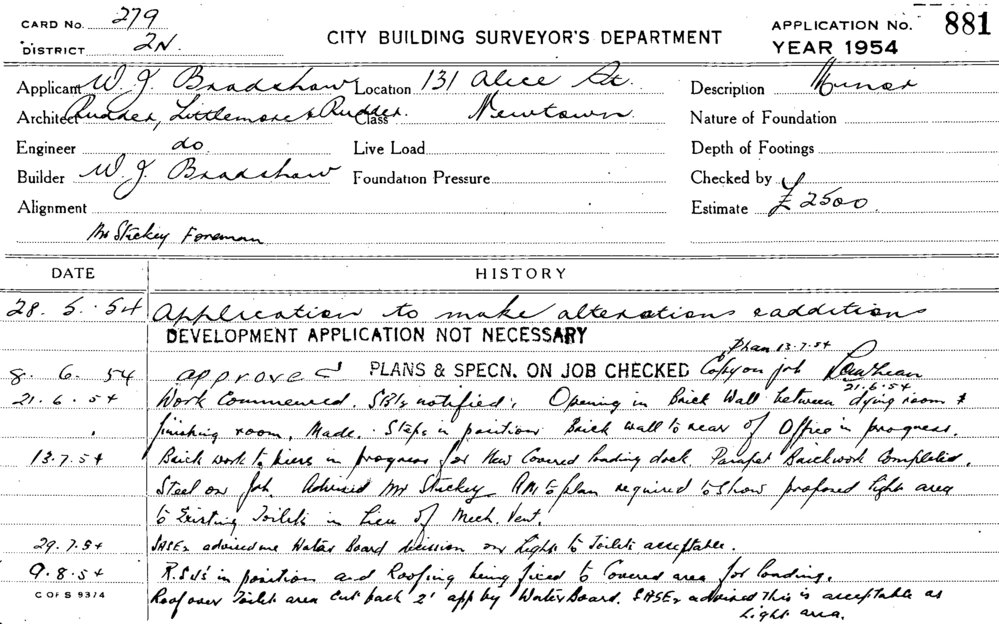 CARD No. 279
DISTRICT 2N.
CITY BUILDING SURVEYOR'S DEPARTMENT
APPLICATION No. 881
YEAR 1954
Applicant W. J. Bradshaw Location 131 Alice St. Description Minor
Architect Rudder, Littlemore & Rudder. Class Newtown. Nature of Foundation
Engineer do Live Load Depth of Footings
Builder W. J. Bradshaw Foundation Pressure Checked by
Alignment Estimate £2500.
Mr Stickey Foreman
DATE HISTORY
28. 5. 54 Application to make alterations & additions
DEVELOPMENT APPLICATION NOT NECESSARY
Plan 13.7.54
8. 6. 54 approved PLANS & SPECN. ON JOB CHECKED Copy on job
21.6.54
21.6.54 Work Commenced. SBIs notified. Opening in Brick Wall between dying room &
finishing room. Made. Steps in position Brick wall to rear of Office in progress.
13.7.54 Brick work to piers in progress for New Covered loading dock. Parapet Brickwork Completed.
Steel on Job. Advised Mr Stickey plan required to show proposed light area
to Existing Toilets in Lieu of Mech. Vent.
29.7.54 advised me Water Board decision on Light to Toilets acceptable.
9.8.54 R.S.Js in position and Roofing being fixed to Covered area for loading.
C OF S 9374
Roof over Toilet area cut back 2' app by Water Board. advised This is acceptable as
Light area.